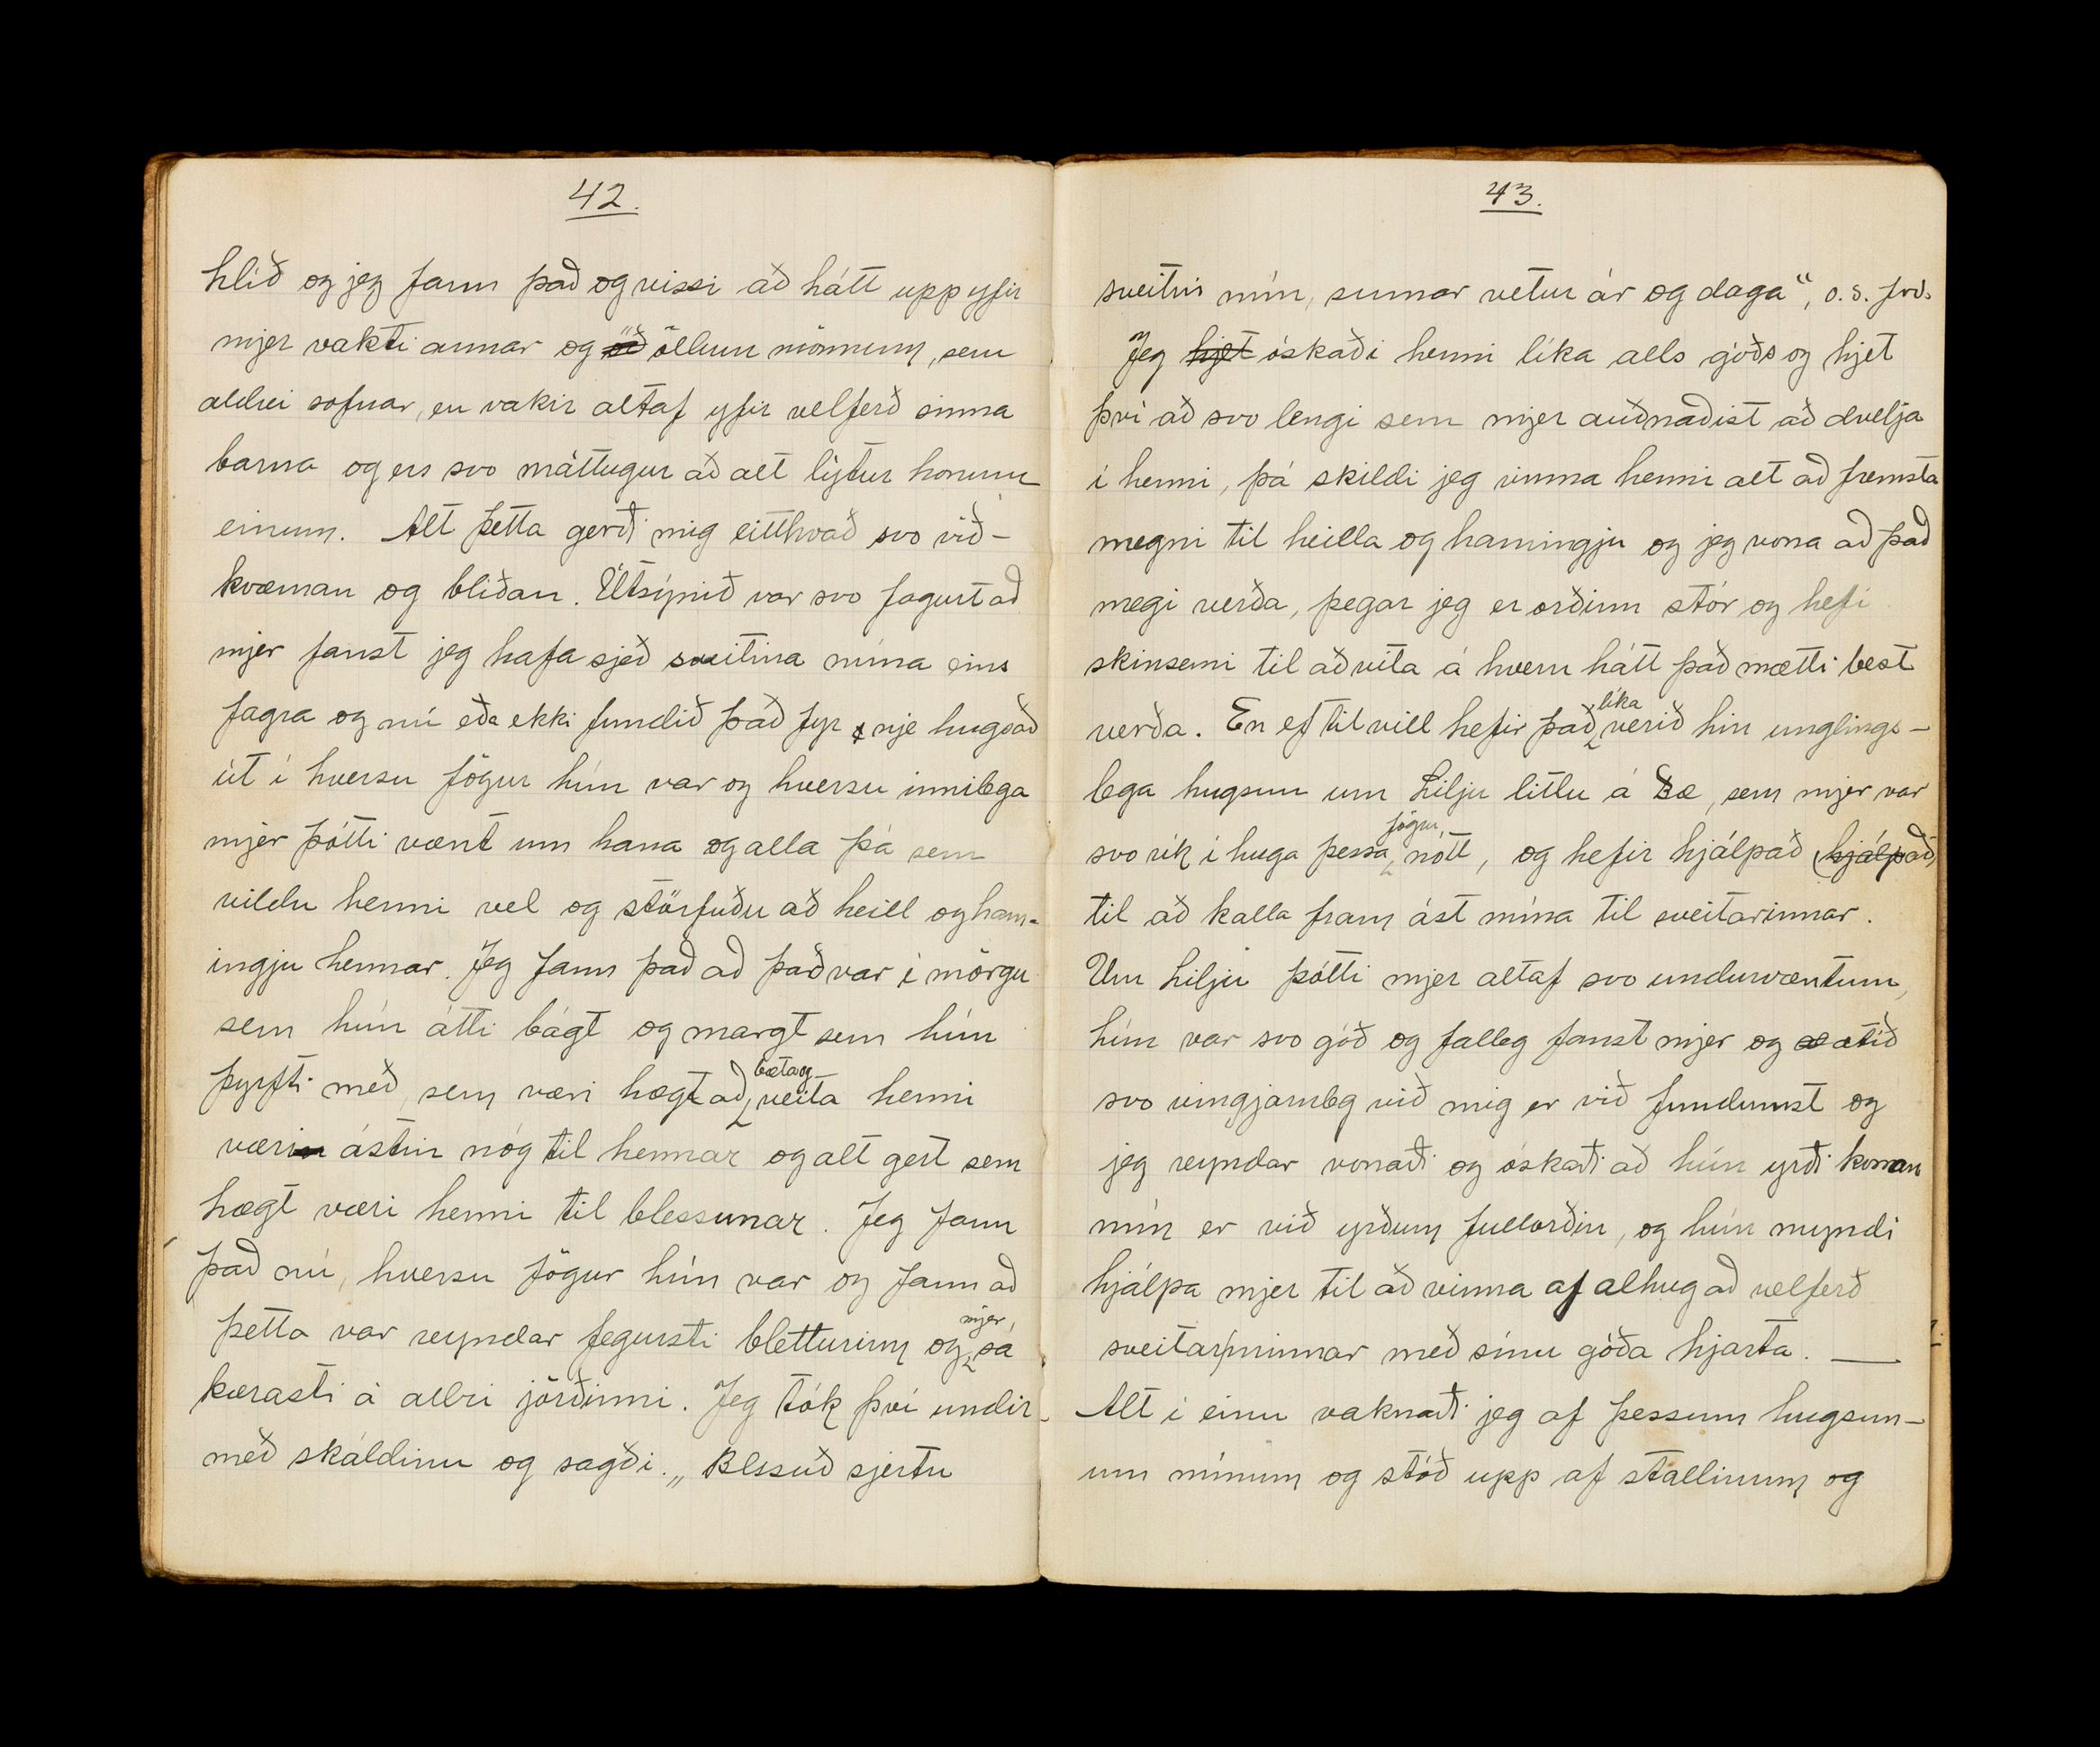 42.
hlíð og jeg fann það og vissi að hátt upp yfir
mjer vakti annar og öð öllum mönnum, sem
aldrei sofnar, en vakir altaf yfir velferð sinna
barna og ers svo máttugur að alt lýtur honum
einum. Alt þetta gerði mig eitthvað svo við-
kvæman og blíðan. Útsýnið var svo fagurt að
mjer fanst jeg hafa sjeð sveitina mína eins
fagra og nú eða ekki fundið það fyr nje hugsað
út í hversu fögur hún var og hversu innilega
mjer þótti vænt um hana og alla þá sem
vildu henni vel og störfuðu að heill og ham-
ingju hennar. Jeg fann það að það var í mörgu
sem hún átti bágt og margt sem hún
þyrfti með, sem væri hægt að bæta og veita henni
væri ástin nóg til hennar og alt gert sem
hægt væri henni til blessunar. Jeg fann
það nú, hversu fögur hún var og fann að
þetta var reyndar fegursti bletturinn og mjer, sá
kærasti á allri jörðinni. Jeg tók því undir
með skáldinu og sagði. „Blessuð sjertu
43.
sveitin mín, sumar vetur ár og daga“, o.s.frv.
Jeg hjet óskaði henni líka alls góðs og hjet
því að svo lengi sem mjer auðnaðist að dvelja
í henni, þá skildi jeg vinna henni alt að fremsta
megni til heilla og hamingju og jeg vona að það
megi verða, þegar jeg er orðinn stór og hefi
skinsemi til að vita á hvern hátt það mætti best
verða. En ef til vill hefir það líka verið hin unglings-
lega hugsun um Lilju litlu á Sæ, sem mjer var
svo rík í huga þessa fögru nótt, og hefir hjálpað (hjálpað)
til að kalla fram ást mína til sveitarinnar.
Um Lilju þótti mjer altaf svo undurvæntum,
hún var svo góð og falleg fanst mjer og æ ætíð
svo vingjarnleg við mig er við fundumst og
jeg reyndar vonaði og óskaði að hún yrði konan
mín er við yrðum fullorðin, og hún myndi
hjálpa mjer til að vinna af alhug að velferð
sveitarinnar með sínu góða hjarta. —
Alt í einu vaknaði jeg af þessum hugsun-
um mínum og stóð upp af stallinum og